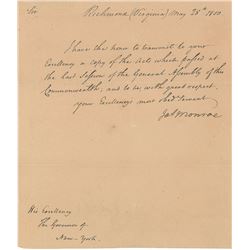 Sir
Richmond (Virginia) May 28th 1800
I have the honor to transmit to your
Excellency a copy of the Acts which passed at
the last Session of the General Assembly of this
Commonwealth; and to be, with great respect
your Excellency's most obdt servant
Jas Monroe
His Excellency
The Governor of
New-York.